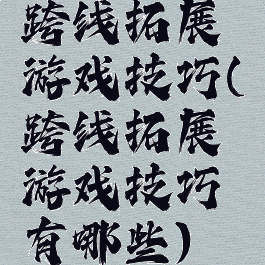 跨线拓展
游戏技巧(
跨线拓展
游戏技巧
有哪些)